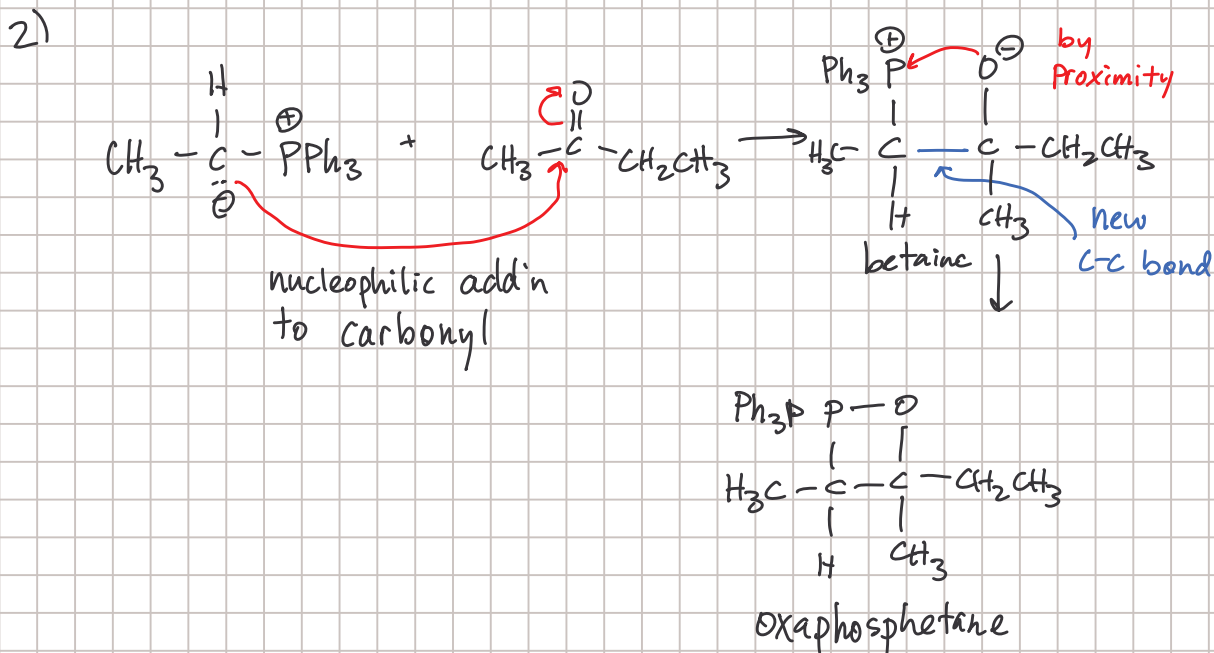 2)
H
CH3 - C - PPh3 + CH3 - C - CH2CH3
⊕
⊖
O
nucleophilic add'n
to carbonyl
⊕ ⊖
Ph3 P O
by
Proximity
H3C - C - C - CH2CH3
H CH3
betaine
new
C-C bond
Ph3P P - O
H3C - C - C - CH2CH3
H CH3
oxaphosphetane